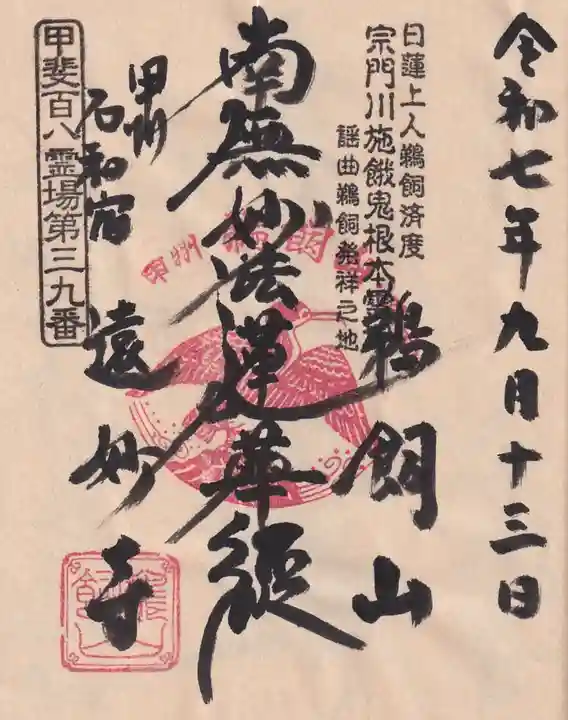 令和七年九月十三日
日蓮上人鵜飼済度
宗門川施餓鬼根本霊
謡曲鵜飼発祥之地
鵜飼山
南無妙法蓮華経
甲州
石和宿
遠妙寺
甲斐百八霊場第三九番
甲州